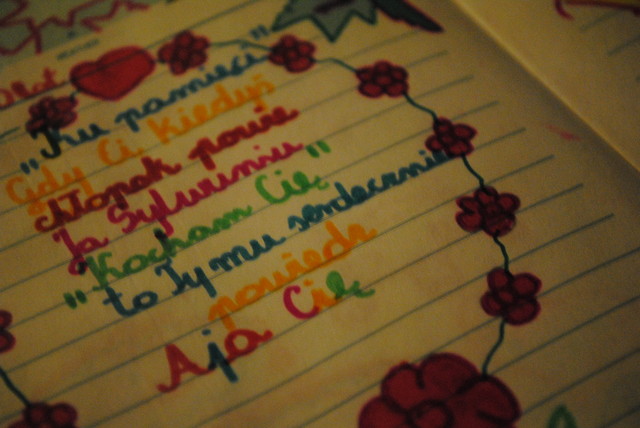 "Ku pamięci"
Gdy Ci kiedyś
chłopak powie
Ja Sylwuniu
"Kocham Cię"
to Ty mu serdecznie
powiedz
A ja Cię